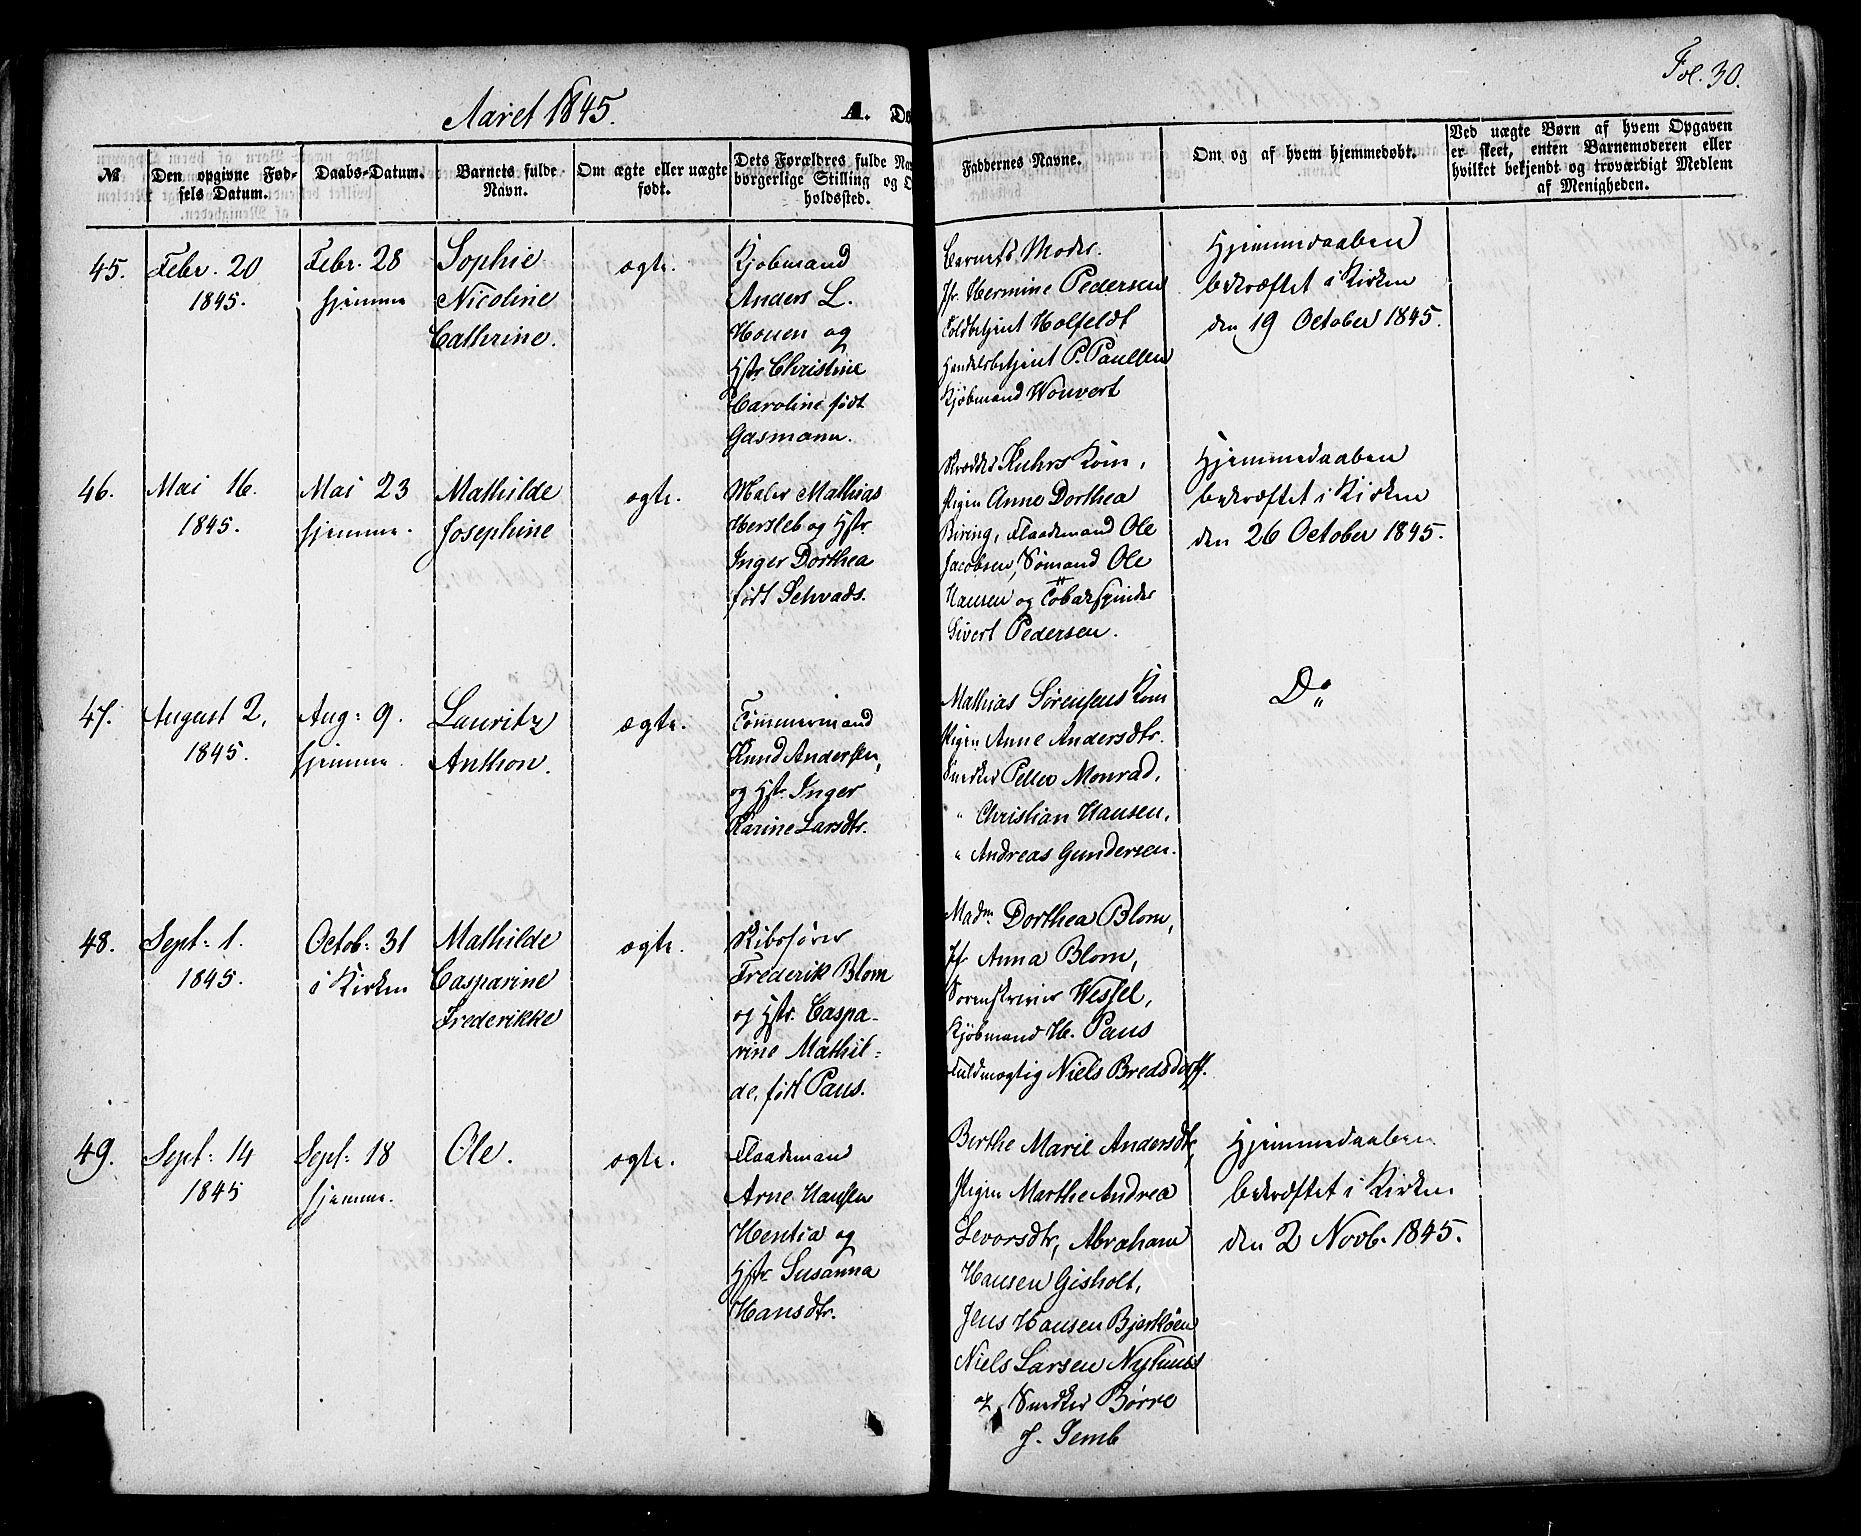 Fol. 30.
Aaret 1845.
A.
№
Den opgivne Fød-
sels Datum.
Daabs-Datum.
Barnets fulde
Navn.
Om ægte eller uægte
født.
Dets Forældres fulde
borgerlige Stilling og
holdssted.
Faddernes Navne.
Om og af hvem hjemmedøbt.
Ved uægte Børn af hvem Opgaven
er skeet, enten Barnemoderen eller
hvilket bekjendt og troværdigt Medlem
af Menigheden.
45.
Febr. 20
1845.
Febr. 28
hjemme
Sophie
Nicoline
Cathrine.
ægte.
Kjøbmand
Anders L.
Houen og
Hstr. Christine
Caroline født
Gasmann.
Barnets Moder.
Jfr. Hermine Pedersen
Toldbetjent Holfeldt
Handelsbetjent P. Paulsen
Kjøbmand Wouvert
Hjemmedaaben
bekræftet i Kirken
den 19 October 1845.
46.
Mai 16.
1845.
Mai 23
hjemme.
Mathilde
Josephine
ægte.
Maler Mathias
Hersleb og Hstr.
Inger Dorthea
født Schvads.
Skrædder Kuhrs Kone,
Pigen Anne Dorthea
Biring, Flaademand Ole
Jacobsen, Sømand Ole
Hansen og Tobakspinder
Sivert Pedersen.
Hjemmedaaben
bekræftet i Kirken
den 26 October 1845.
47.
August 2,
1845.
Aug: 9.
hjemme.
Lauritz
Anthon.
ægte.
Tømmermand
Knud Andersen,
og Hstr. Inger
Karine Larsdtr.
Mathias Sørensens Kone
Pigen Anne Andersdtr.
Snedker Petter Monrad,
" Christian Hansen,
" Andreas Gundersen.
Do
48.
Sept: 1.
1845.
Octob: 31
i Kirken
Mathilde
Casparine
Frederikke
ægte.
Skibsfører
Frederik Blom
og Hstr. Caspa-
rine Mathil-
de, født Paus.
Madm. Dorthea Blom,
Jf. Anna Blom,
Sorenskriver Wessel,
Kjøbmand H. Paus
Fuldmægtig Niels Bredsdorff.
49.
Sept: 14
1845
Sept: 18
hjemme.
Ole.
ægte.
Flaademan
Arne Hansen
Hentia og
Hstr. Susanna
Hansdtr.
Berthe Marie Andersdtr,
Pigen Marthe Andrea
Levorsdtr, Abraham
Hansen Gisholt,
Jens Hansen Bjerkøen
Niels Larsen
og Snedker Børre
J. Semb
Hjemmedaaben
bekræftet i Kirken
den 2 Novb. 1845.